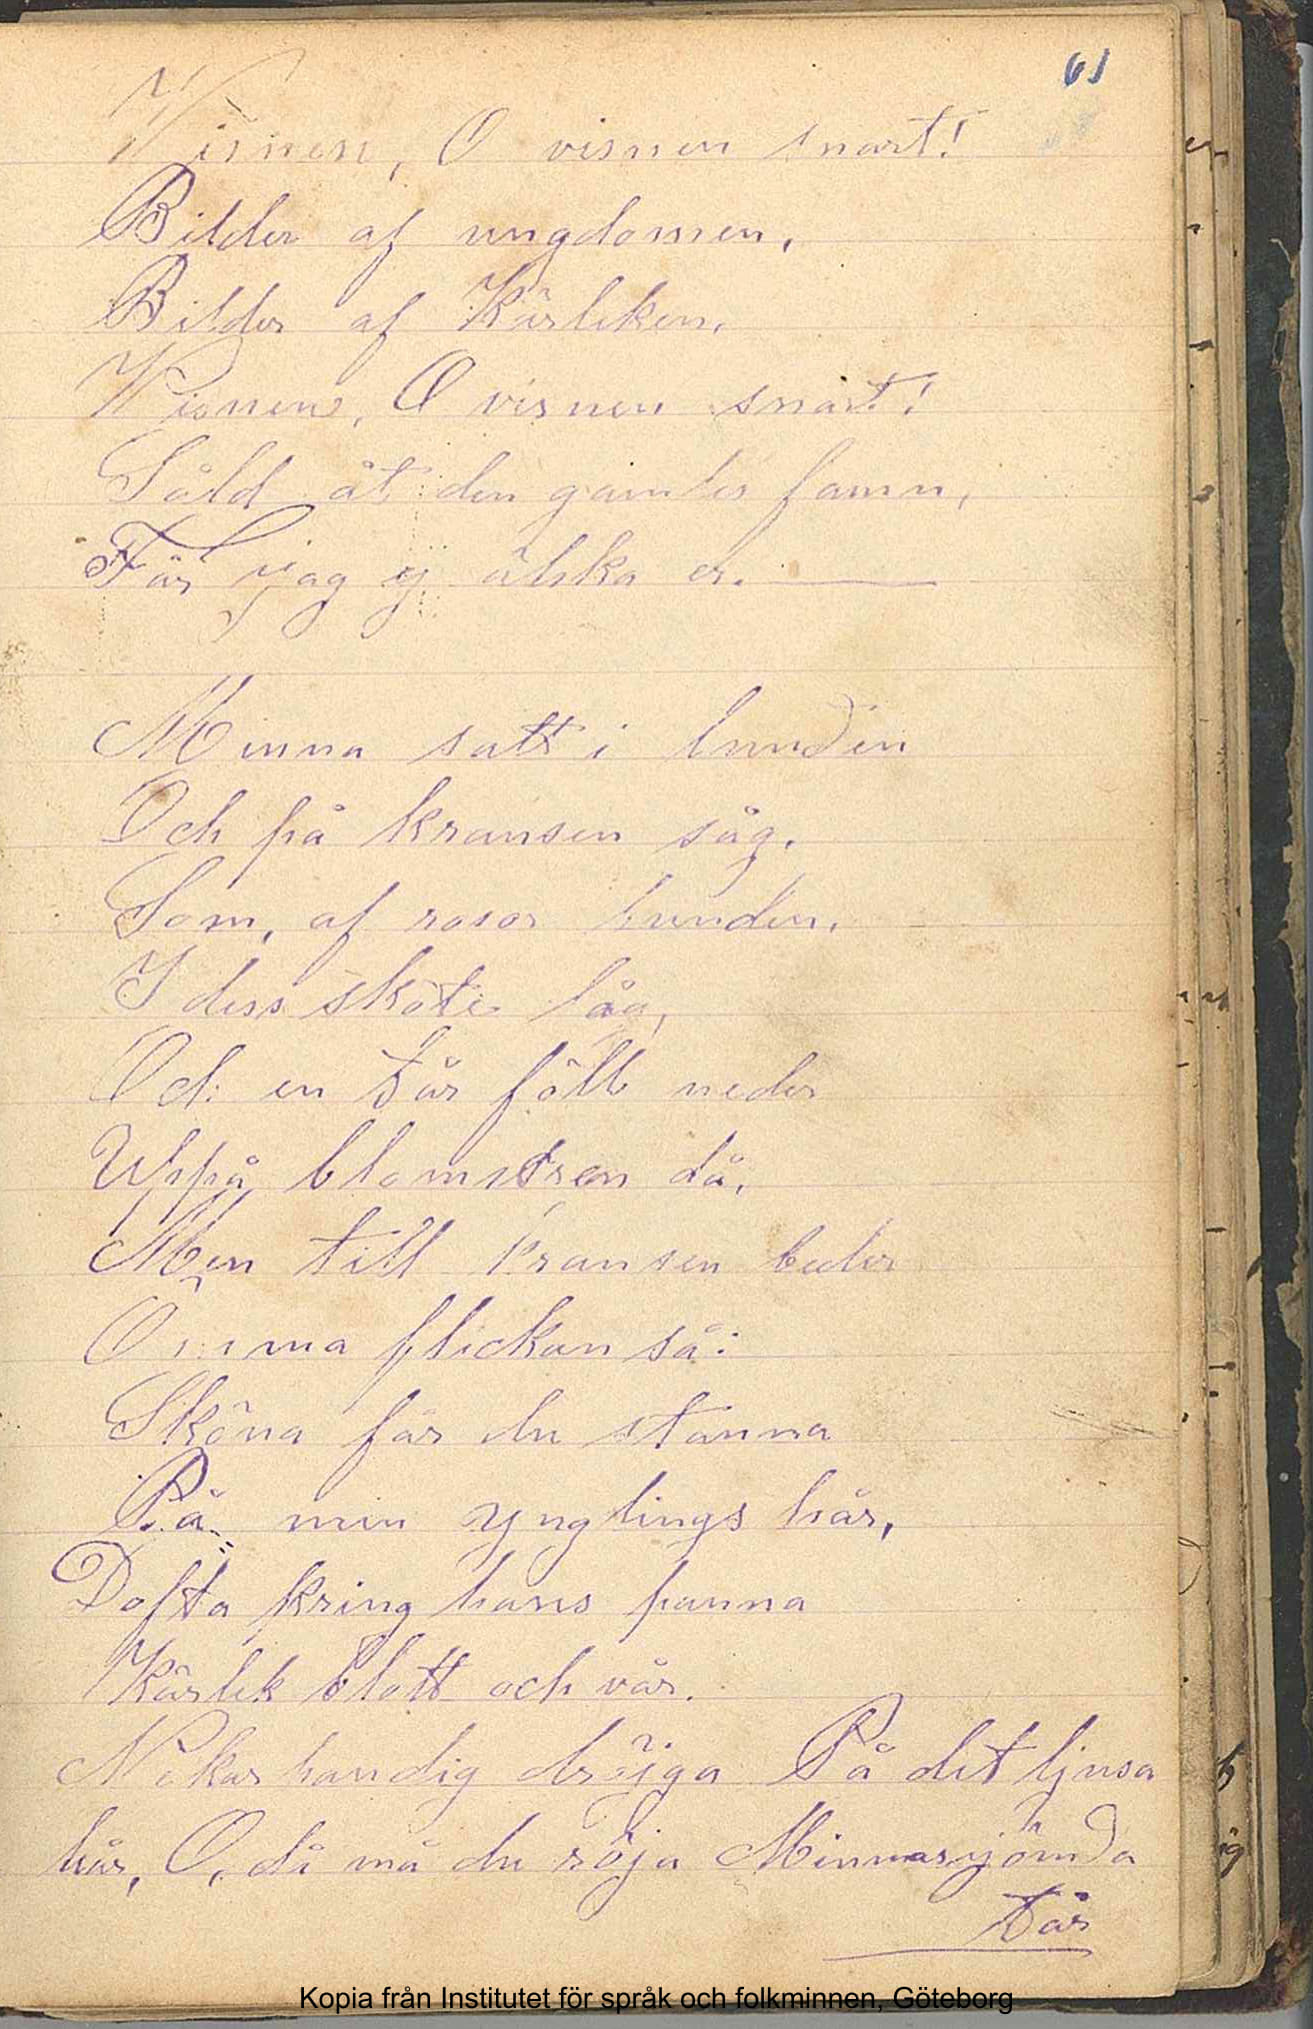 61
Wisnen, O visnen snart!
Bilder af ungdomen,
Bilder af Kärleken,
Wisnen, O visnen snart!
Såld åt den gamles famn,
Får jag ej älska er.
Minna satt i lunden
Och på kransen såg,
Som, af rosor bunden,
I dess sköte låg,
Och en tår föll neder
Uppå blomstren då,
Men till kransen beder
Ömma flickan så:
Sköna får du stanna
På min ynglings hår,
Dofta kring hans panna
Kärlek blott och vår.
Nekar han dig dröjga På det ljusa
hår, O, då må du röja Minnas gömda
tår
Kopia från Institutet för språk och folkminnen, Göteborg